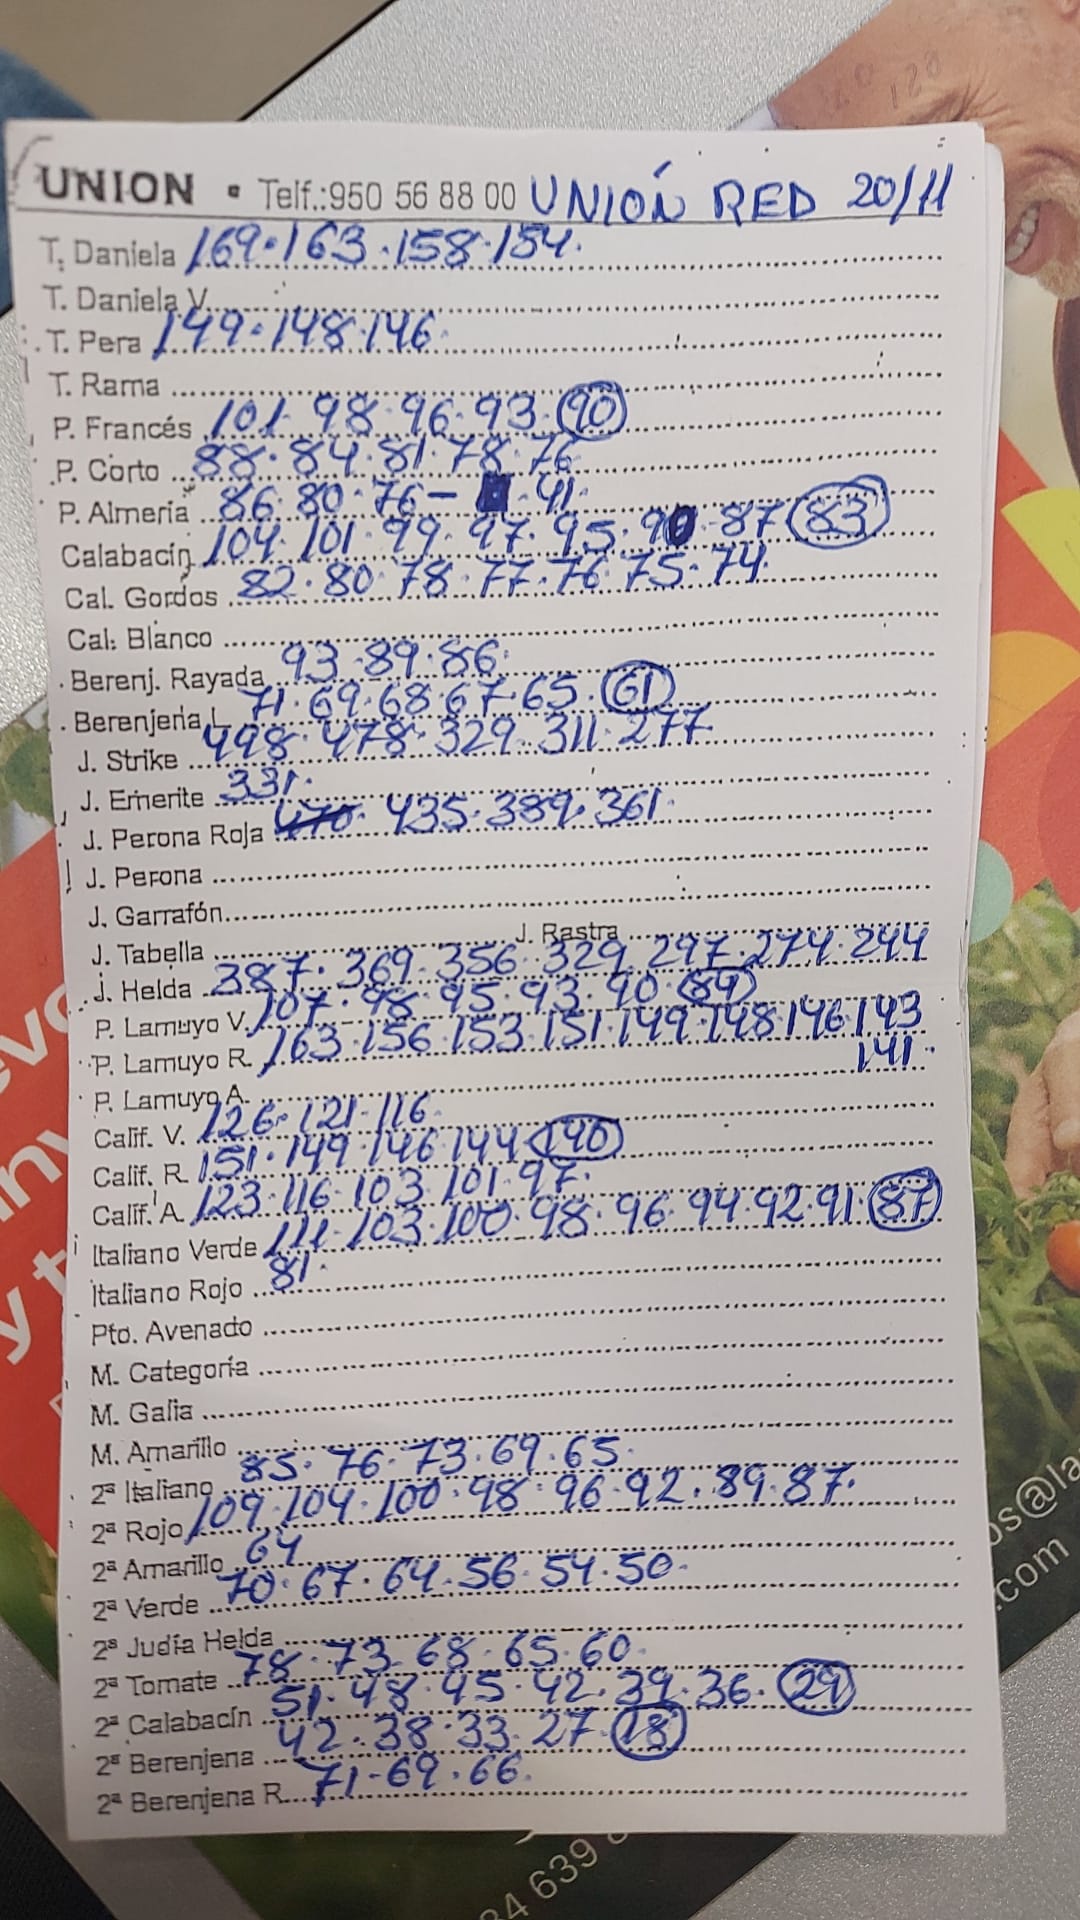 UNION • Telf.:950 56 88 00 UNIÓN RED 20/11
T. Daniela 169.163.158.154.
T. Daniela V.
T. Pera 149.148.146.
T. Rama
P. Francés 101.98.96.93.90
P. Corto 88.84.81.78.76
P. Almería 86.80.76-.41.
Calabacín 104.101.99.97.95.90.87.83
Cal. Gordos 82.80.78.77.76.75.74.
Cal. Blanco
Berenj. Rayada 93.89.86.
Berenjena L 71.69.68.67.65.61
J. Strike 498.478.329.311.277
J. Emerite 331.
J. Perona Roja 470.435.389.361.
J. Perona
J. Garrafón
J. Tabella J. Rastra
J. Helda 387.369.356.329.297.274.244
P. Lamuyo V. 107.98.95.93.90.89
P. Lamuyo R. 163.156.153.151.149.148.146.143
141.
P. Lamuyo A.
Calif. V. 126.121.116.
Calif. R. 151.149.146.144.140
Calif. A. 123.116.103.101.97.
Italiano Verde 111.103.100.98.96.94.92.91.87
Italiano Rojo 81.
Pto. Avenado
M. Categoría
M. Galia
M. Amarillo
2ª Italiano 85.76.73.69.65.
2ª Rojo 109.104.100.98.96.92.89.87.
2ª Amarillo 64
2ª Verde 70.67.64.56.54.50.
2ª Judía Helda
2ª Tomate 78.73.68.65.60.
2ª Calabacín 51.48.45.42.39.36.29
2ª Berenjena 42.38.33.27.18
2ª Berenjena R. 71.69.66.
os@la
.com
34 639